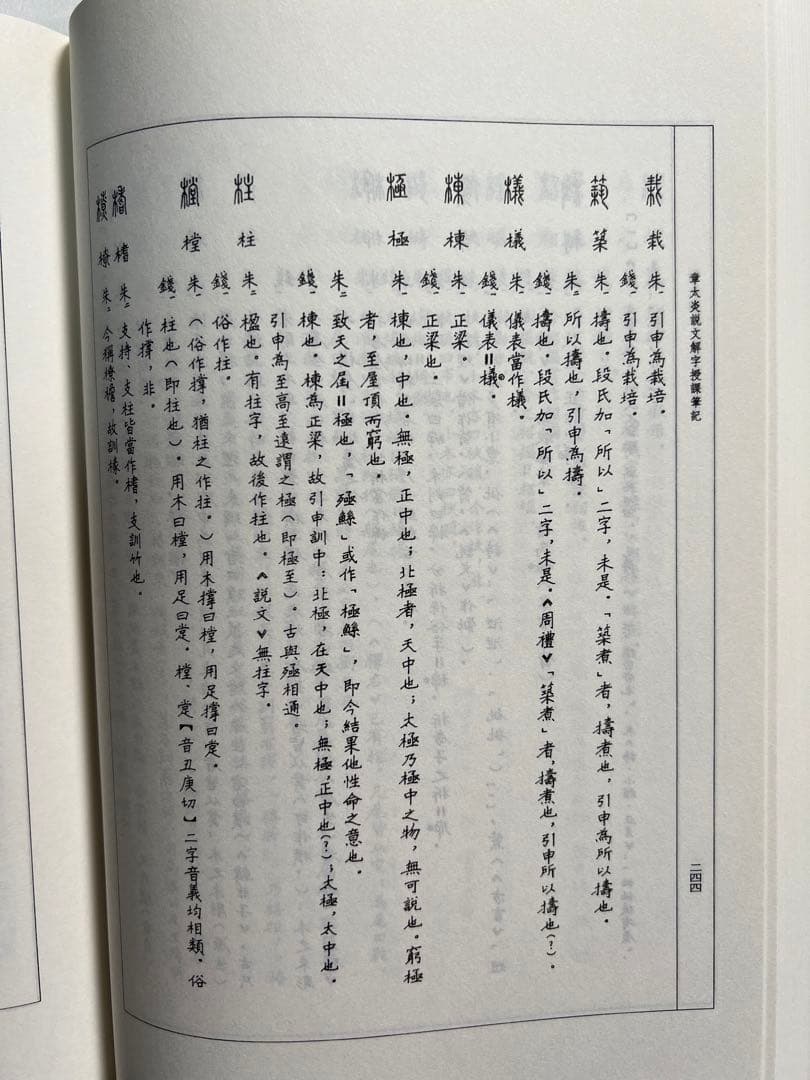 章太炎説文解字授課筆記
二四四
栽 栽 朱一 引申為栽培。
錢一 引申為栽培。
築 築 朱一 擣也。段氏加「所以」二字，未是。「築煮」者，擣煮也，引申為所以擣也。
朱二 所以擣也，引申為擣。
錢一 擣也。段氏加「所以」二字，未是。《周禮》「築煮」者，擣煮也，引申所以擣也(？)。
檥 檥 朱一 儀表當作檥。
錢一 儀表＝檥。
棟 棟 朱一 正梁。
錢一 正梁也。
極 極 朱一 棟也，中也。無極，正中也；北極者，天中也；太極乃極中之物，無可說也。窮極
者，至屋頂而窮也。
朱二 致天之屆＝極也，「殛鯀」或作「極鯀」，即今結果他性命之意也。
錢一 棟也。棟為正梁，故引申訓中：北極，在天中也；無極，正中也(？)；太極，太中也。
引申為至高至遠謂之極(即極至)。古與殛相通。
柱 柱 朱二 楹也。有拄字，故後作拄也。《說文》無拄字。
錢一 俗作拄。
樘 樘 朱一 (俗作撐，猶柱之作拄。)用木撐曰樘，用足撐曰㲋。
錢一 柱也(即拄也)。用木曰樘，用足曰㲋。樘、㲋【音丑庚切】二字音義均相類。俗
作撐，非。
榰 榰 朱二 支持、支柱皆當作榰，支訓竹也。
橑 橑 朱二 今稱橑檐，故訓椽。